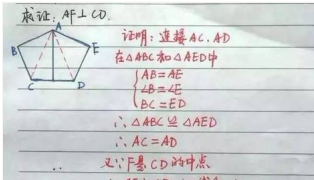 求证: AF⊥CD.
A
B
E
C
D
证明: 连接 AC. AD
在△ABC和△AED中
AB=AE
∠B=∠E
BC=ED
∴ △ABC≌△AED
∴ AC=AD
又∵F是CD的中点